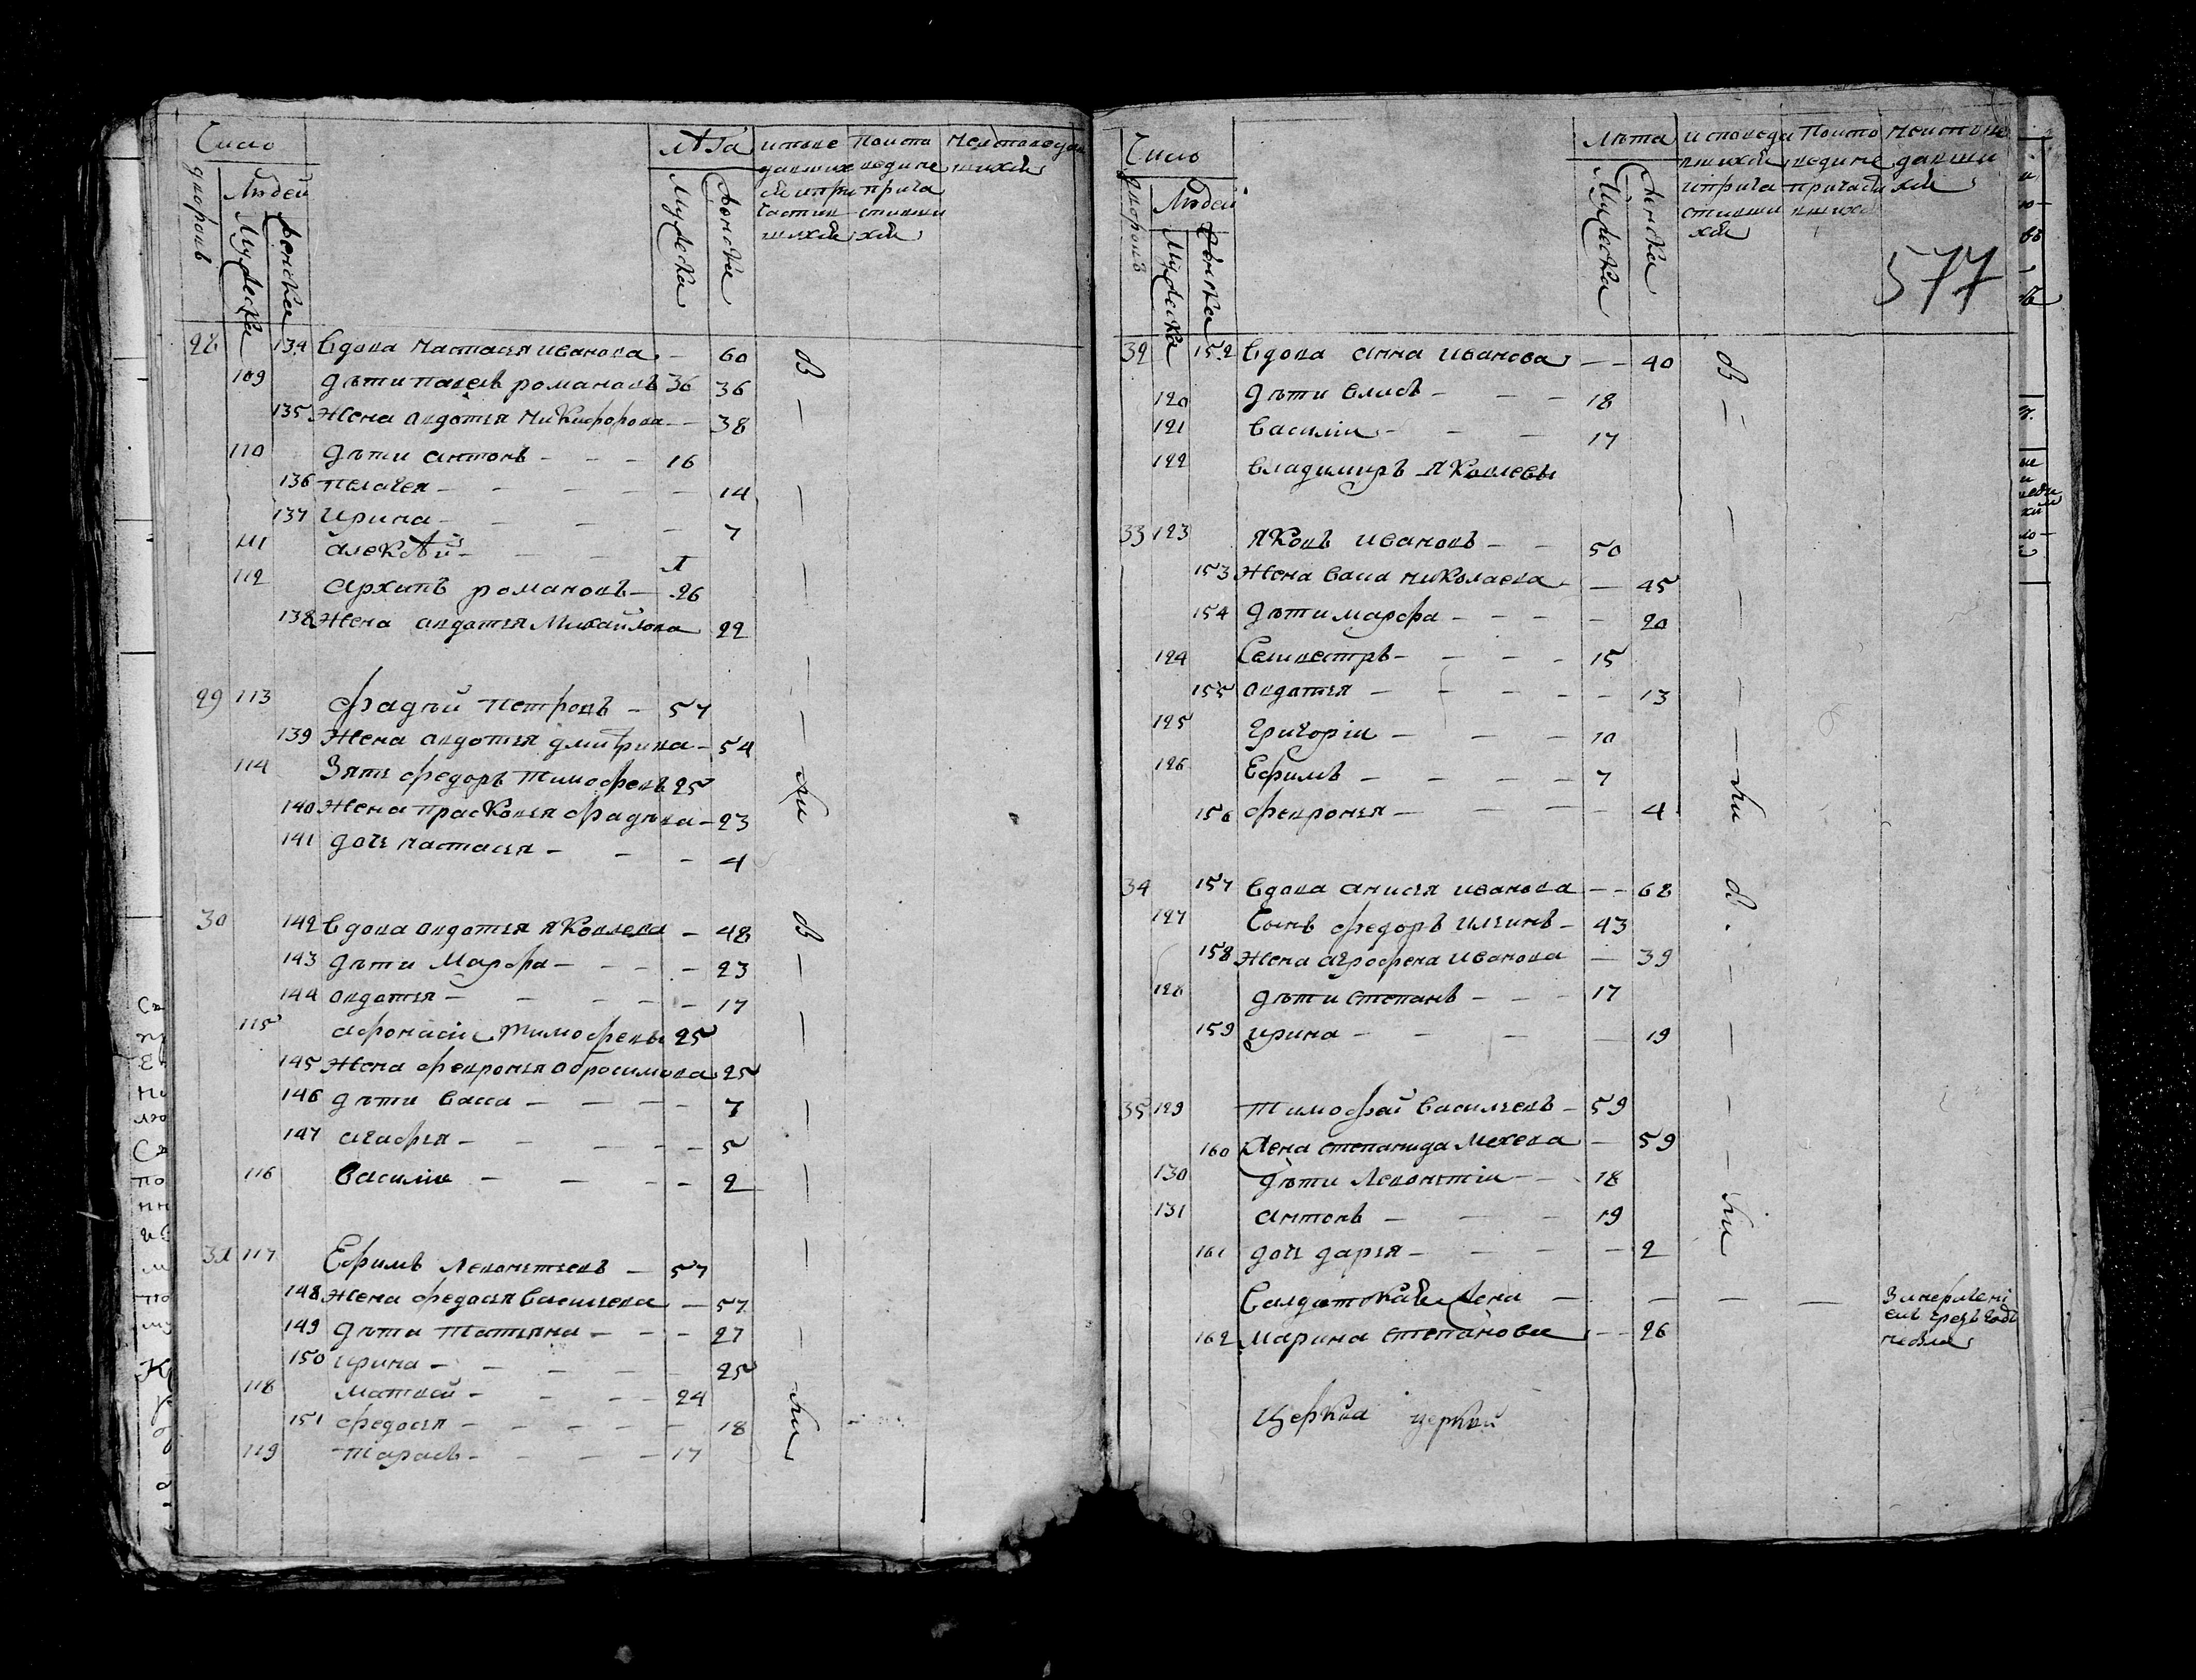 Число
дворовъ
Людей
Мужеска
женска
Лѣта
Мужеска
женска
исповедавшихся и причастившихся
исповедавшихся
28 134 Вдова Настасья иванова — 60
109 дѣти павелъ романовъ 36 36
135 Жена авдотья Никифорова — 38
110 дѣти антонъ — — — 16
136 пелагея — — — — — 14
137 Ирина — — — — 7
111 алексѣй — — — 1
112 архипъ романовъ — 26
138 Жена авдотья Михайлова 22
29 113 фадѣй петровъ — 57
139 Жена авдотья дмитрива — 54
114 Зять федоръ тимофеевъ 25
140 Жена прасковья фадѣва — 23
141 дочь настасья — — — 4
30 142 Вдова авдотья яковлева — 48
143 дѣти Марфа — — — — 23
144 авдотья — — — — — 17
115 афонасіи тимофевы 25
145 Жена февронья абросимова 25
146 дѣти васса — — — — 7
147 агафья — — — — — 5
116 Василіи — — — — 2
31 117 Ефимъ Левонтьевъ — 57
148 Жена федосья Васильева — 57
149 дѣти татьяна — — — 27
150 ирина — — — — — 25
118 матвей — — — — 24
151 федосья — — — — — 18
119 тарасъ — — — — 17
Число
дворовъ
Людей
Мужеска
женска
Лѣта
Мужеска
женска
577
32 152 Вдова анна иванова — — 40
120 дѣти власъ — — — 18
121 Василіи — — — 17
122 владимиръ яковлевы
33 123 яковъ ивановъ — — 50
153 Жена васа николаева — — 45
154 дѣти марфа — — — — 20
124 Селивестръ — — — — 15
155 авдотья — — — — — 13
125 григоріи — — — 10
126 Ефимъ — — — — 7
156 февронья — — — — 4
34 157 Вдова анисья иванова — — 68
127 Сынъ федоръ ильинъ — 43
158 Жена агрофена иванова — 39
128 дѣти степанъ — — — 17
159 ирина — — — — 19
35 129 тимофей васильевъ — 59
160 Жена степанида Михева — 59
130 дѣти Левонтіи — — 18
131 антонъ — — — 19
161 дочь дарья — — — — 2
Салдатская жена — — — —
162 марина степанова — — 26
Церква церквй